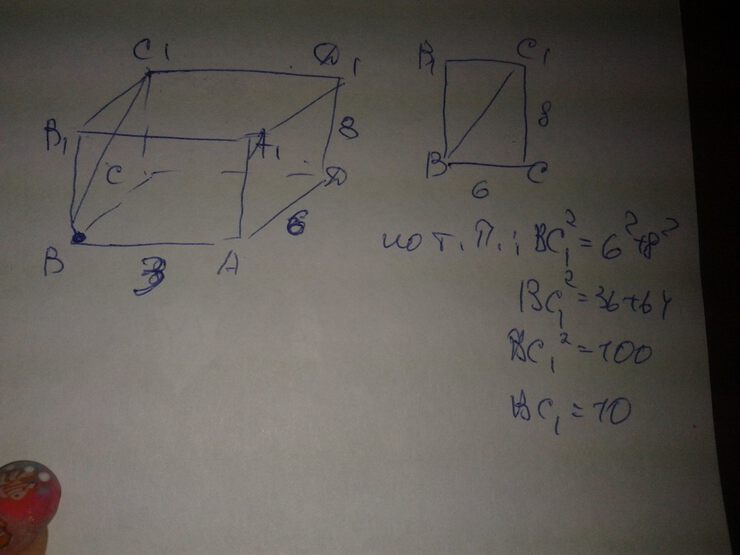 C1 D1
B1 A1 8
C D
6
B 3 A
B1 C1
8
B C
6
по т. П.: BC₁² = 6²+8²
BC₁² = 36+64
BC₁² = 100
BC₁ = 10